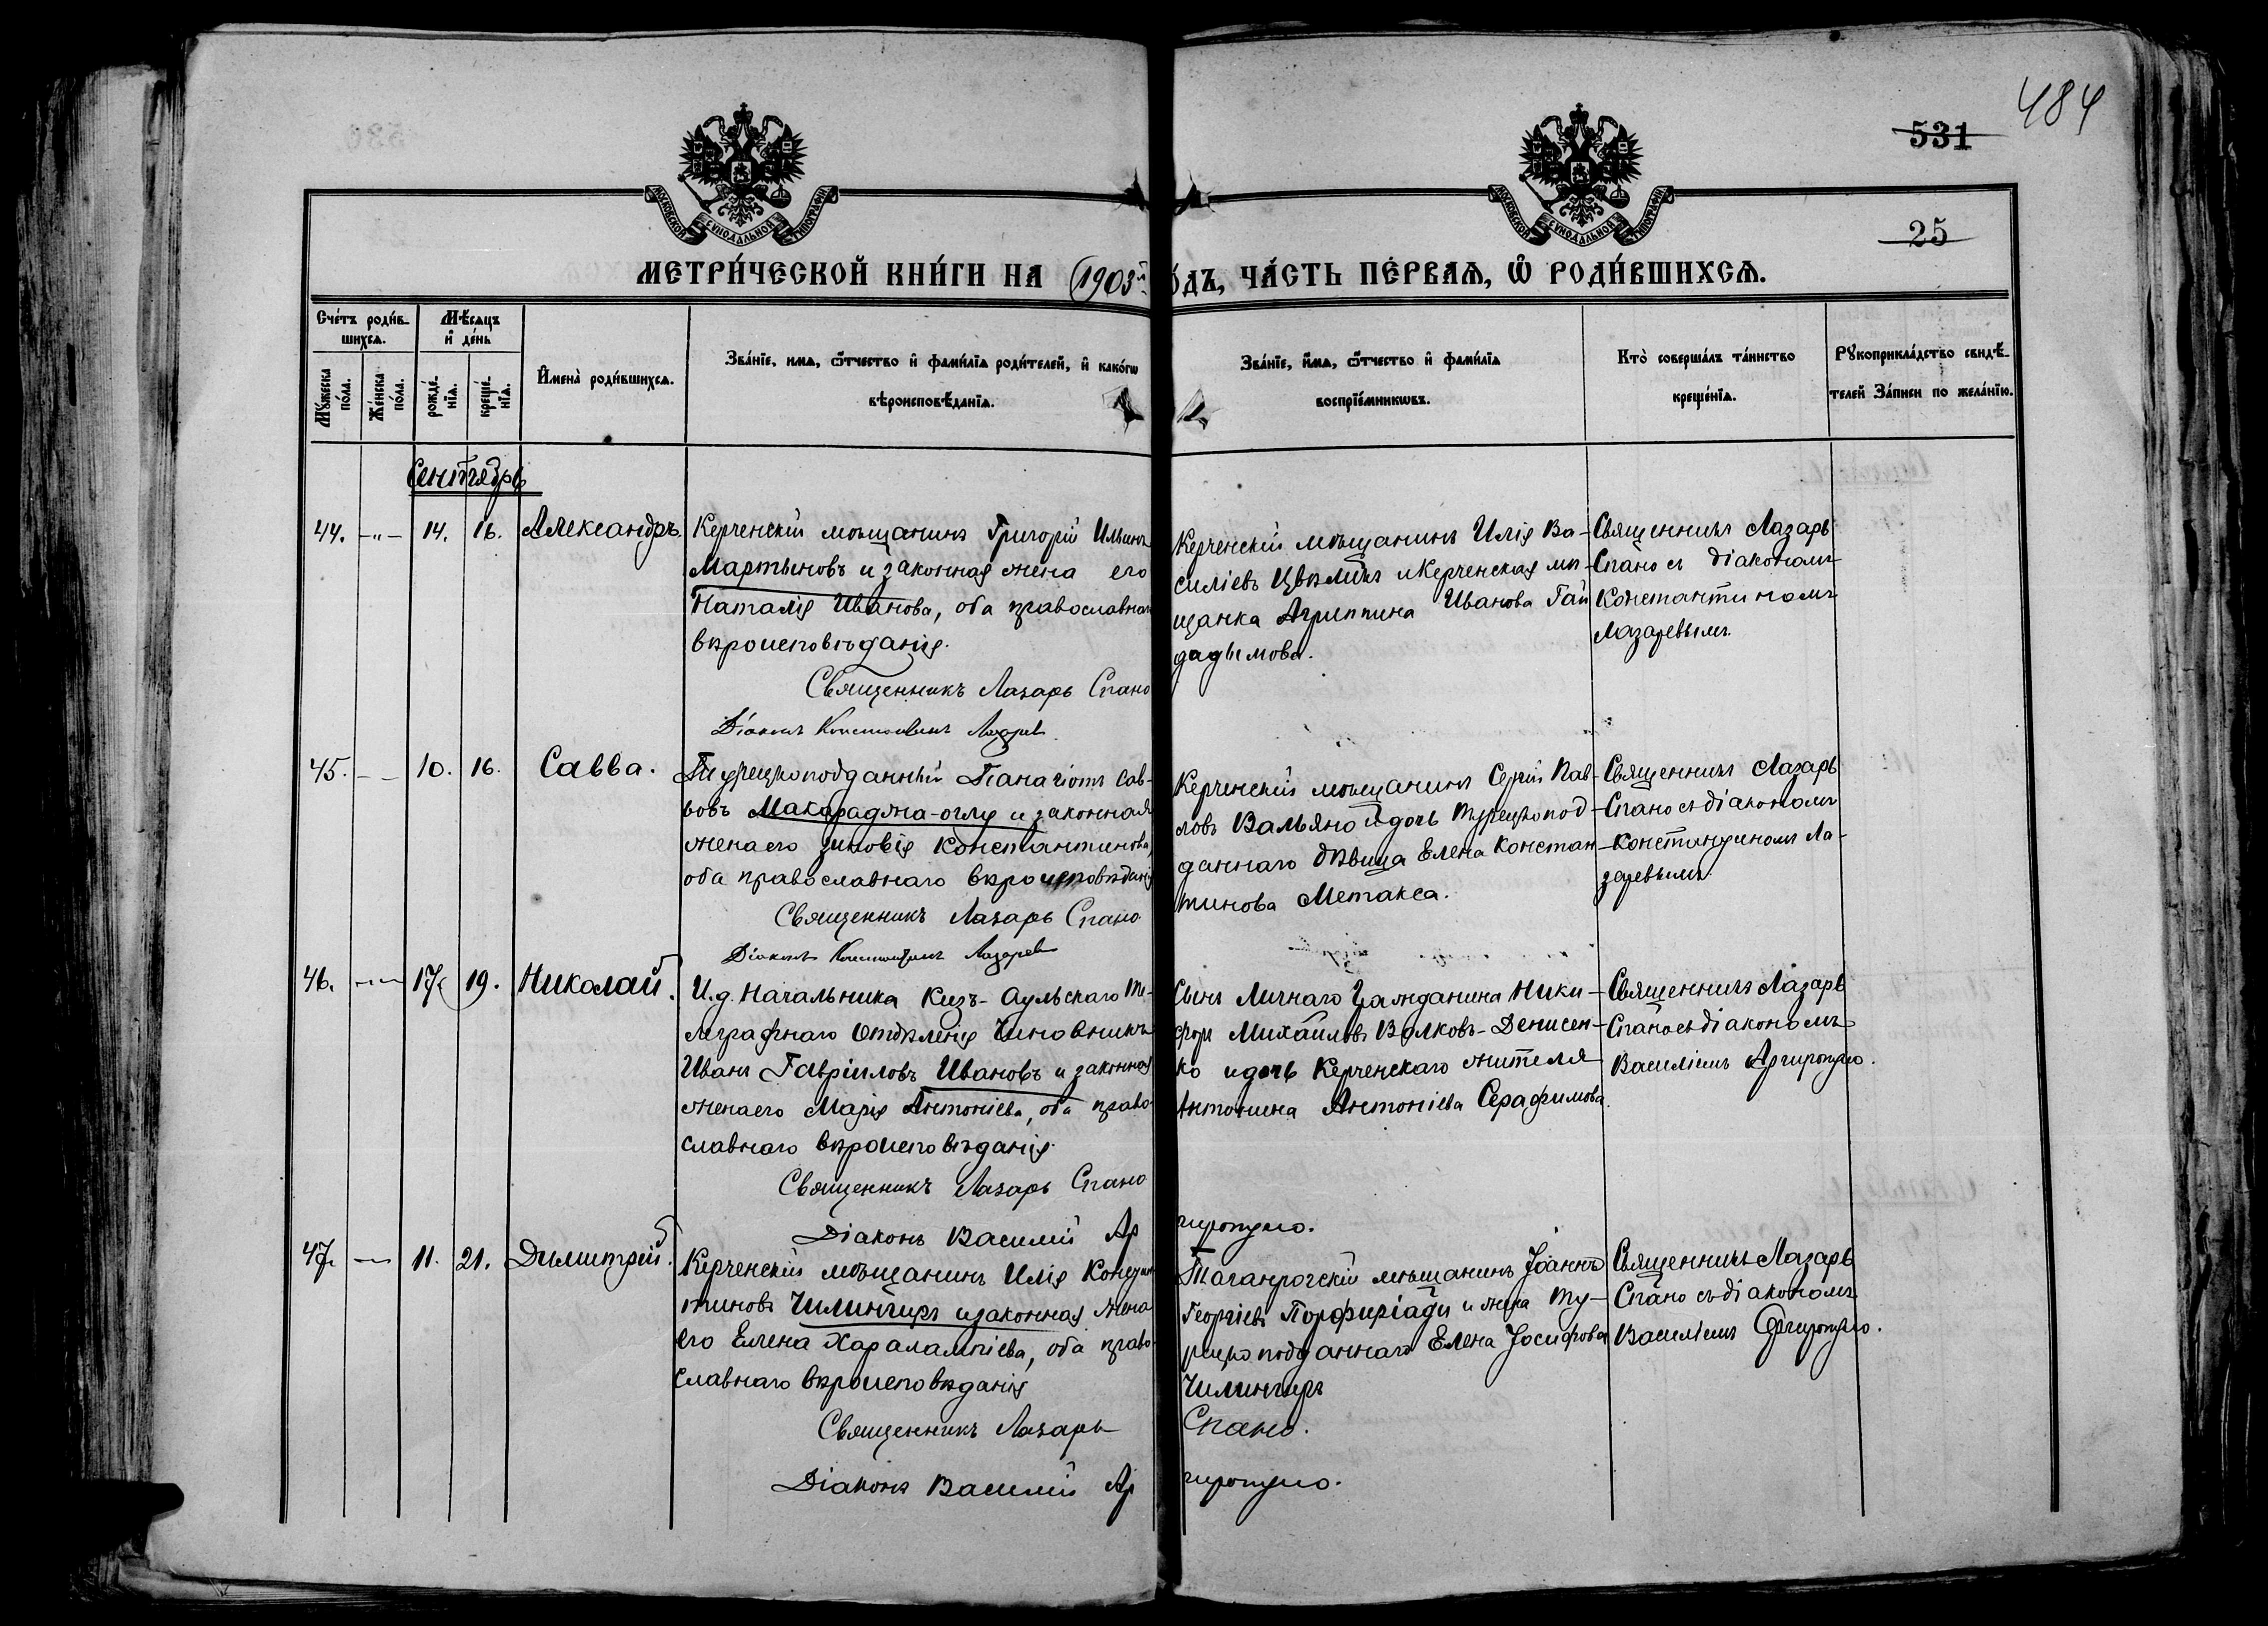 484
531
МОСКОВСКОЙ СѴНОДАЛЬНОЙ ТИПОГРАФІИ
МОСКОВСКОЙ СѴНОДАЛЬНОЙ ТИПОГРАФІИ
25
МЕТРИ́ЧЕСКОЙ КНИ́ГИ НА 1903й ОДЪ, ЧА́СТЬ ПЕ́РВАѦ, Ѡ҆ РОДИ́ВШИХСѦ.
Сче́тъ роди́в-
шихсѧ.
Мꙋ́жеска по́ла.
Же́нска по́ла.
Мѣ́сѧцъ
и҆ де́нь
рожде́-
нїѧ.
креще́-
нїѧ.
И҆мена̀ роди́вшихсѧ.
Зва́нїе, имѧ, ѻ҆́тчество и҆ фами́лїѧ роди́телей, и҆ како́гѡ
вѣроисповѣ́данїѧ.
Зва́нїе, и҆́мѧ, ѻ҆́тчество и҆ фами́лїѧ
воспрїе́мникѡвъ.
Кто̀ соверша́лъ та́инство
креще́нїѧ.
Рꙋкоприкла́дство свидѣ́-
телей За́писи по жела́нїю.
Сентябрь
44. -"- 14. 16. Александръ.
Керченскій мѣщанинъ Григорій Ильинъ
Мартыновъ и законная жена его
Наталія Иванова, оба православнаго
вѣроисповѣданія.
Священникъ Лазарь Спано
Діаконъ Константинъ Лазарев
Керченскій мѣщанинъ Илія Ва-
силіевъ Цвѣлихъ и Керченская мѣ-
щанка Агриппина Иванова Гай
дадымова.
Священникъ Лазарь
Спано съ діакономъ
Константиномъ
Лазаревымъ.
45. — 10. 16. Савва.
Турецкоподданный Панагіотъ Сав-
вовъ Макараджа-оглу и законная
жена его Зиновія Константинова,
оба православнаго вѣроисповѣданія
Священникъ Лазарь Спано
Діаконъ Константинъ Лазарев
Керченскій мѣщанинъ Сергій Пав-
ловъ Вальяно и дочь турецкопод-
даннаго дѣвица Елена Констан-
тинова Метакса.
Священникъ Лазарь
Спано съ діакономъ
Константиномъ Ла-
заревымъ.
46. — 17. 19. Николай.
И.д. Начальника Кизъ-Аульскаго Те-
леграфнаго Отдѣленія Чиновникъ
Иванъ Гавріиловъ Ивановъ и законная
жена его Марія Антоніева, оба право-
славнаго вѣроисповѣданія
Священникъ Лазарь Спано
Діаконъ Василій Аргиропуло.
Сынъ Личнаго Гражданина Ники-
форъ Михаиловъ Волковъ-Денисен-
ко и дочь Керченскаго жителя
Антонина Антоніева Серафимова.
Священникъ Лазарь
Спано съ діакономъ
Василіемъ Аргиропуло.
47. — 11. 21. Димитрій.
Керченскій мѣщанинъ Илія Констан
тиновъ Чилингиръ и законная жена
его Елена Харалампіева, оба право
славнаго вѣроисповѣданія
Священникъ Лазарь Спано.
Діаконъ Василій Аргиропуло.
Таганрогскій мѣщанинъ Іоаннъ
Георгіевъ Порфиріади и жена ту-
рецкоподданнаго Елена Іосифова
Чилингиръ
Священникъ Лазарь
Спано съ діакономъ
Василіемъ Аргиропуло.